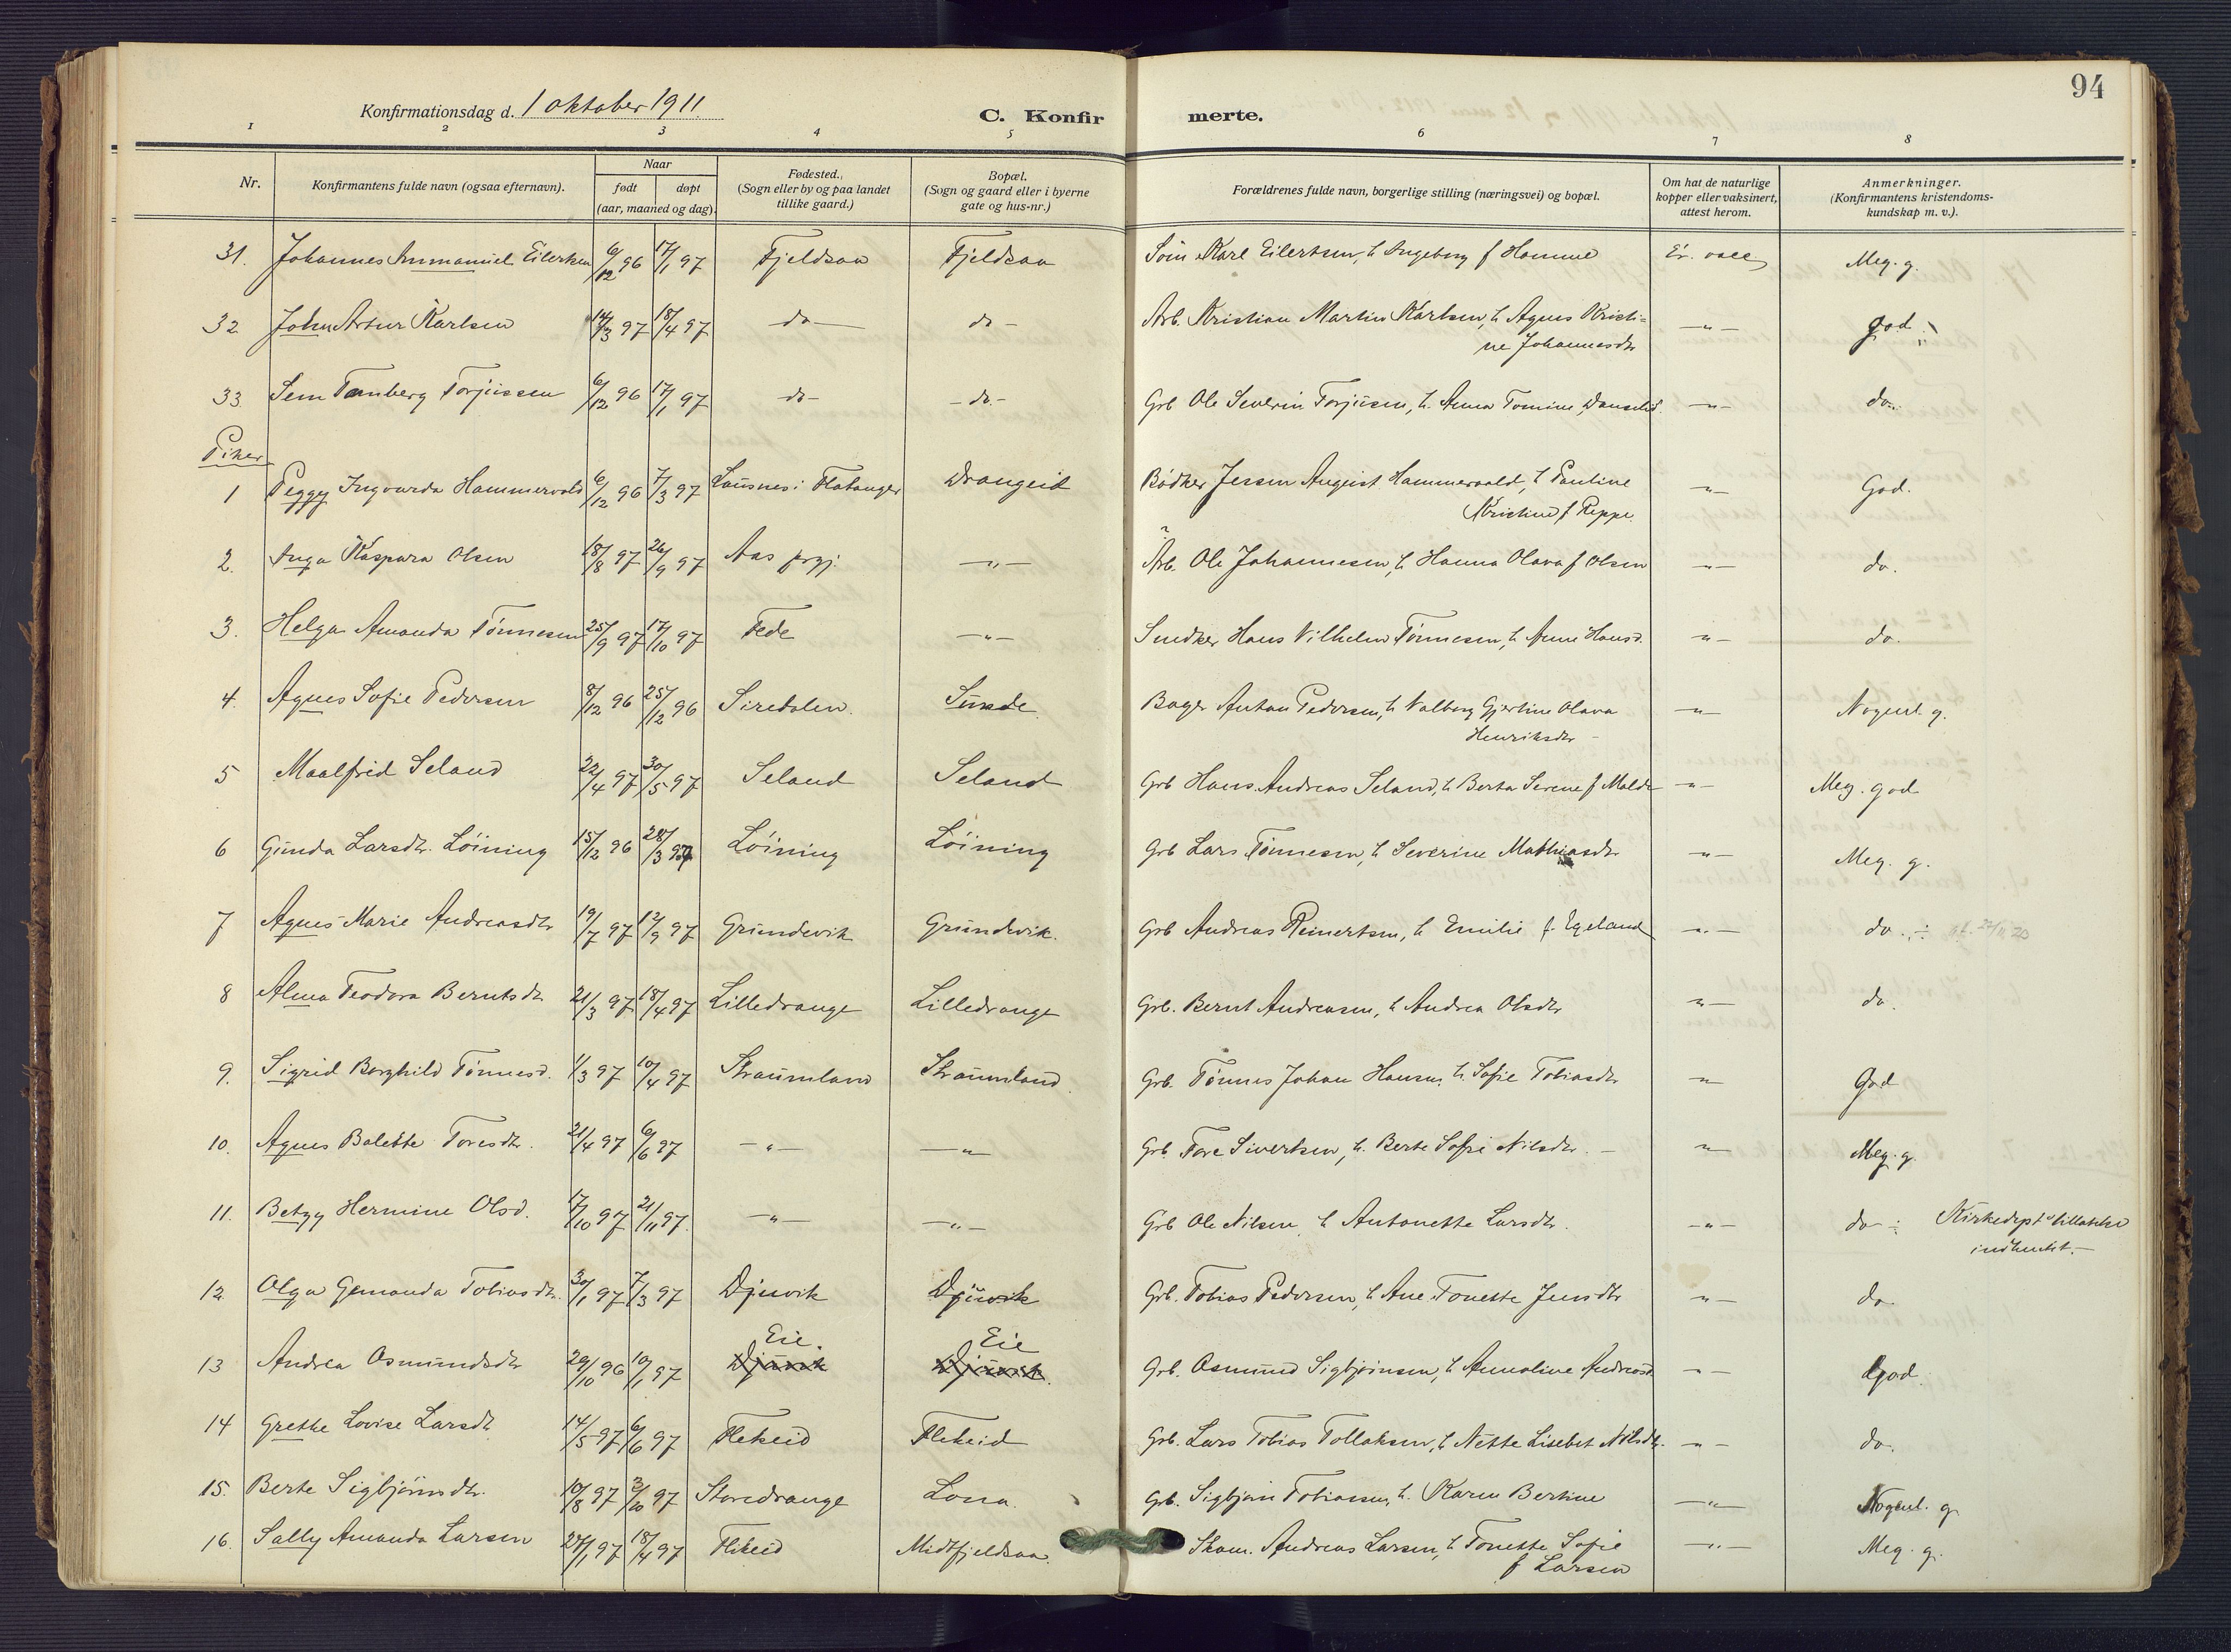 94
Konfirmationsdag d. 1 oktober 1911. C. Konfirmerte.
1 2 3 4 5 6 7 8
Nr. Konfirmantens fulde navn (ogsaa efternavn). Naar født døpt (aar, maaned og dag). Fødested. (Sogn eller by og paa landet tillike gaard.) Bopæl. (Sogn og gaard eller i byerne gate og hus-nr.) Forældrenes fulde navn, borgerlige stilling (næringsvei) og bopæl. Om hat de naturlige kopper eller vaksinert, attest herom. Anmerkninger. (Konfirmantens kristendomskundskap m. v.).
31. Johannes Immanuel Eilertsen 6/12 96 17/1 97 Fjeldsaa Fjeldsaa Karl Eilertsen, h Ingeborg f Homme Er. vacc Meg. g.
32 John Artur Karlsen 14/3 97 18/4 97 do — do — Arb. Kristian Martin Karlsen, h Agnes Kristi=
ne Johannesdtr — " — god
33. Sem Tamberg Torjussen 6/12 96 17/1 97 do — — do. — Grb Ole Severin Torjusen, h. Anna Tomine — " — do.
Piker
1 Peggy Ingvarda Hammervold 6/12 96 7/3 97 Lausnes i Flatanger Drangeid Bødker Jessen August Hammervold, h Pauline
Kristine f Reppe — " — God.
2. Inga Kaspara Olsen 18/8 97 26/9 97 Aas prgj. — " — Arb. Ole Johannesen, h Hanna Olava f Olsen — " — do.
3. Helga Amanda Tönnesen 25/9 97 17/10 97 Fede — " — Snedker Hans Vilhelm Tönnesen, h Anne Hansd. — " — do.
4. Agnes Sofie Pedersen 8/12 96 25/12 96 Siredalen. Sunde Bager Anton Pedersen, h Valborg Gjertine Olava
Henriksdtr — " — Nogenl. g.
5 Maalfrid Seland 22/4 97 30/5 97 Seland Seland Grb Hans Andreas Seland, h Berta Serene f Molde — " — Meg. god
6 Gunda Larsdtr. Löining 15/12 96 28/3 97 Löining Löining Grb Lars Tönnesen, h Severine Mathiasdtr — " — Meg. g.
7 Agnes Marie Andreasdtr 19/7 97 12/9 97 Grundevik Grundevik. Grb Andreas Reinertsen, h Emilie f. Egeland — " — do.
8 Alma Teodora Berntsdtr 21/3 97 18/4 97 Lilledrange Lilledrange Grb. Bernt Andreasen, h Andrea Olsdtr — " — do.
9. Sigrid Borghild Tönnesd. 1/3 97 10/4 97 Straumland Straumland Grb. Tönnes Johan Hansen, h. Sofie Tobiasdtr — " — God
10. Agnes Bolette Toresdtr. 21/4 97 6/6 97 — " — — " — Grb. Tore Sivertsen, h. Berte Sofie Nilsdtr. — — " — Meg. g.
11. Betzy Hermine Olsd. 17/10 97 21/11 97. — " — — " — Grb Ole Nilsen, h Antonette Larsdtr. — " — do — Kirkedept tillatelse
indhentet. —
12 Olga Gemanda Tobiasdtr. 30/1 97 7/3 97 Djuvik Djuvik Grb. Tobias Pedersen, h Ane Tonette Jensdtr — " — do.
13 Andrea Osmundsdtr 29/10 96 10/1 97 Eie. Djuvik Eie Djuvik. Grb. Osmund Sigbjörnsen, h Annoline Andreasd. — " — God.
14 Grethe Lovise Larsdtr 14/5 97 6/6 97 Flekeid Flekeid Grb. Lars Tobias Tollaksen, h Nette Lisebet Nilsdtr. — " — do.
15. Berte Sigbjörnsdtr. 10/8 97 3/10 97 Storedrange Lona. Grb. Sigbjörn Tobiasen, h. Karen Bertine — " — Nogenl. g.
16. Sally Amanda Larsen 27/1 97 18/4 97 Flikeid Midtfjeldsaa. Skom. Andreas Larsen, h Tonette Sofie
f Larsen — " — Meg. g.